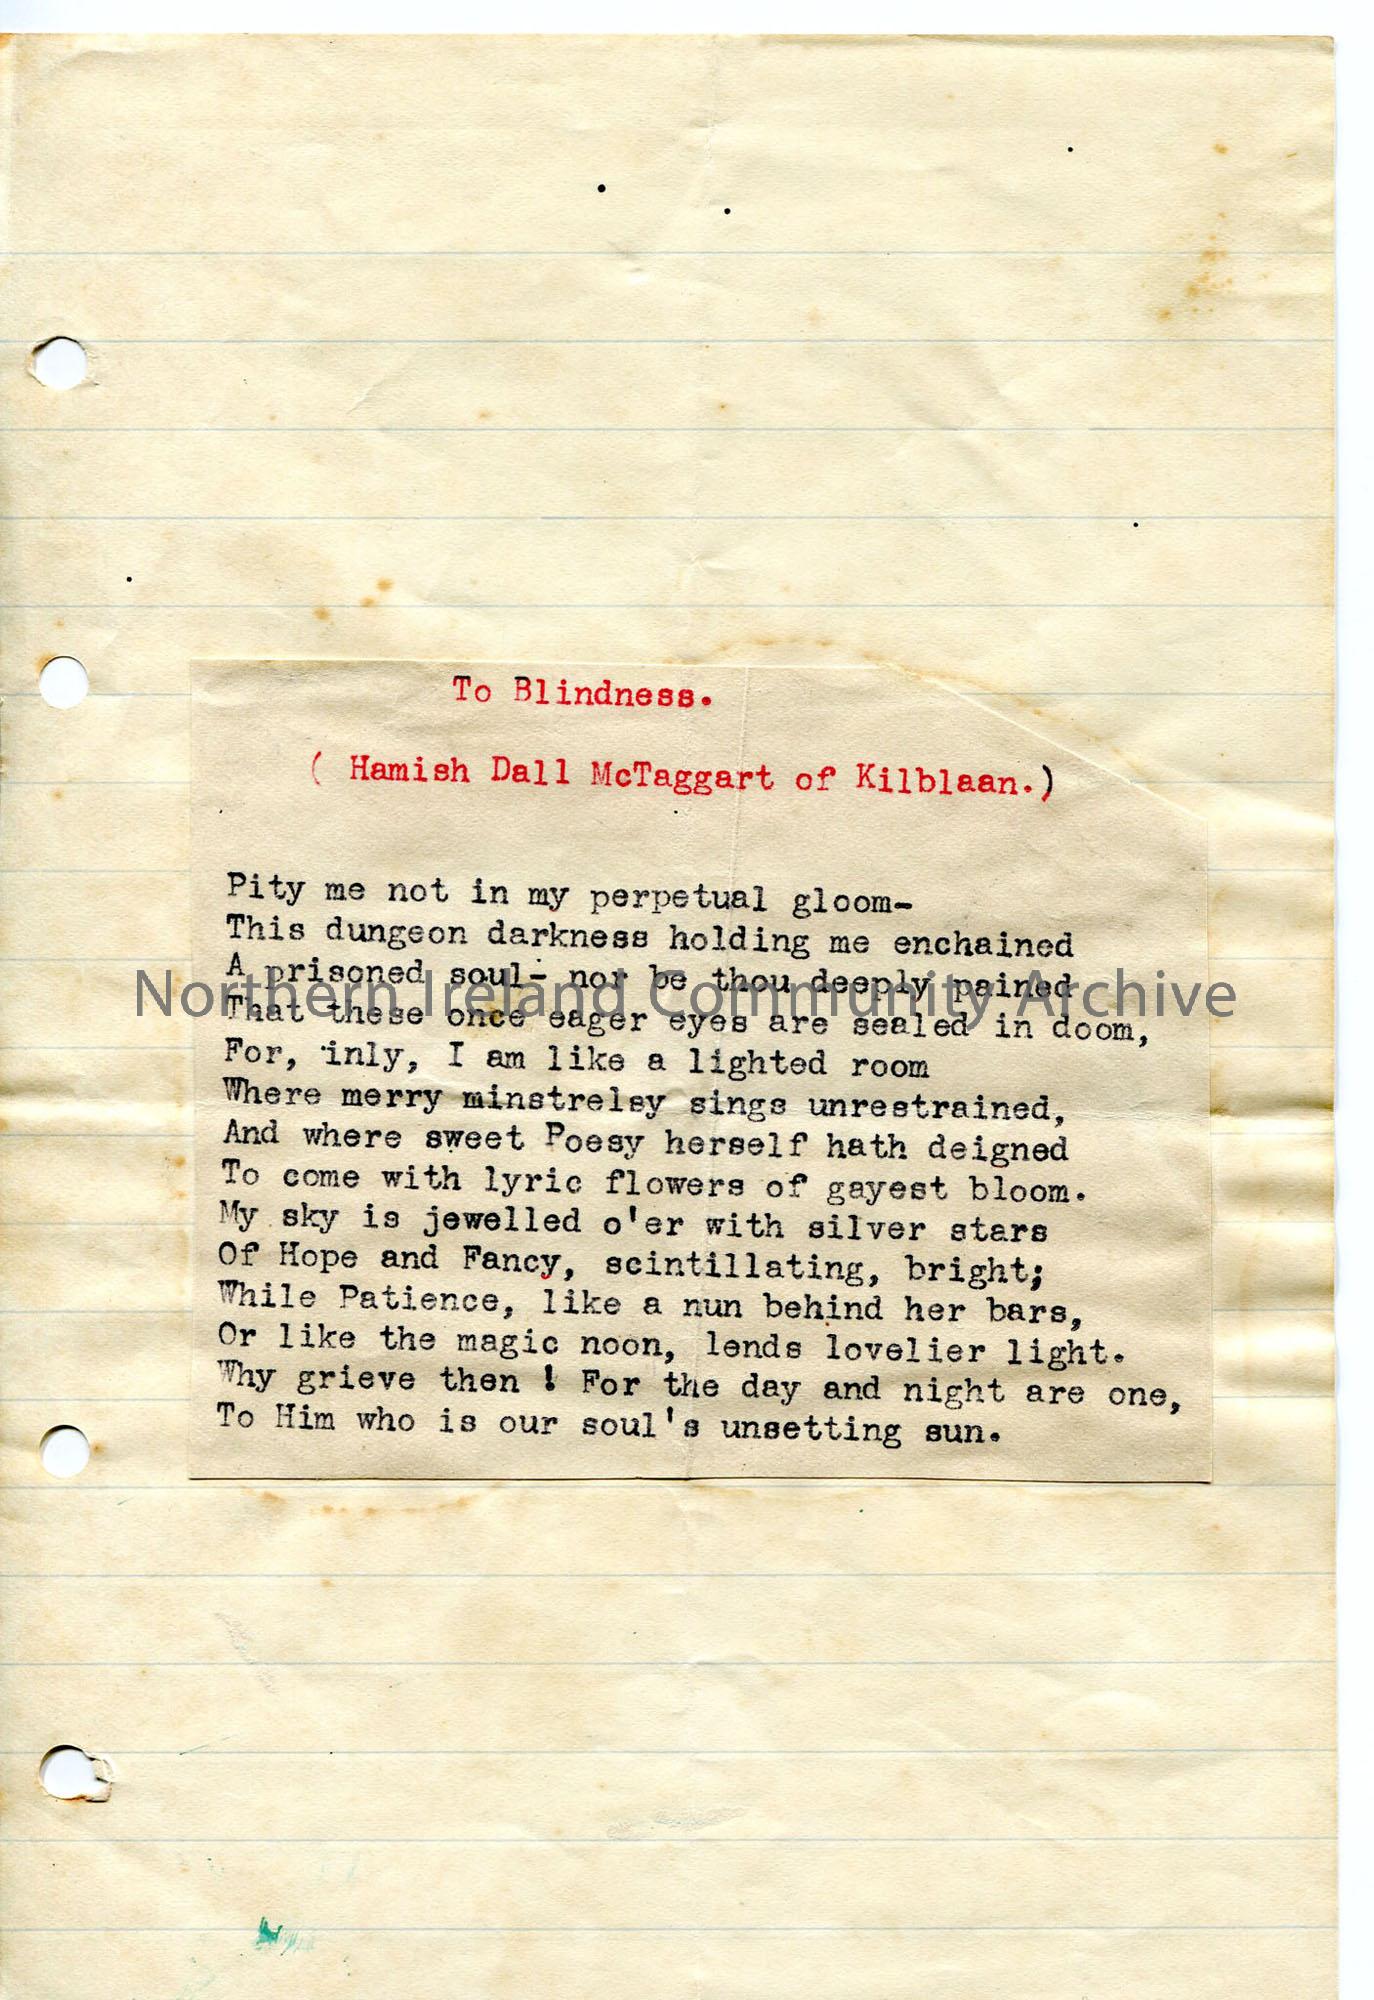 To Blindness.
( Hamish Dall McTaggart of Kilblaan.)
Pity me not in my perpetual gloom-
This dungeon darkness holding me enchained
A prisoned soul- nor be thou deeply pained
Northern Ireland Community Archive
That these once eager eyes are sealed in doom,
For, inly, I am like a lighted room
Where merry minstrelsy sings unrestrained,
And where sweet Poesy herself hath deigned
To come with lyric flowers of gayest bloom.
My sky is jewelled o'er with silver stars
Of Hope and Fancy, scintillating, bright;
While Patience, like a nun behind her bars,
Or like the magic noon, lends lovelier light.
Why grieve then ! For the day and night are one,
To Him who is our soul's unsetting sun.